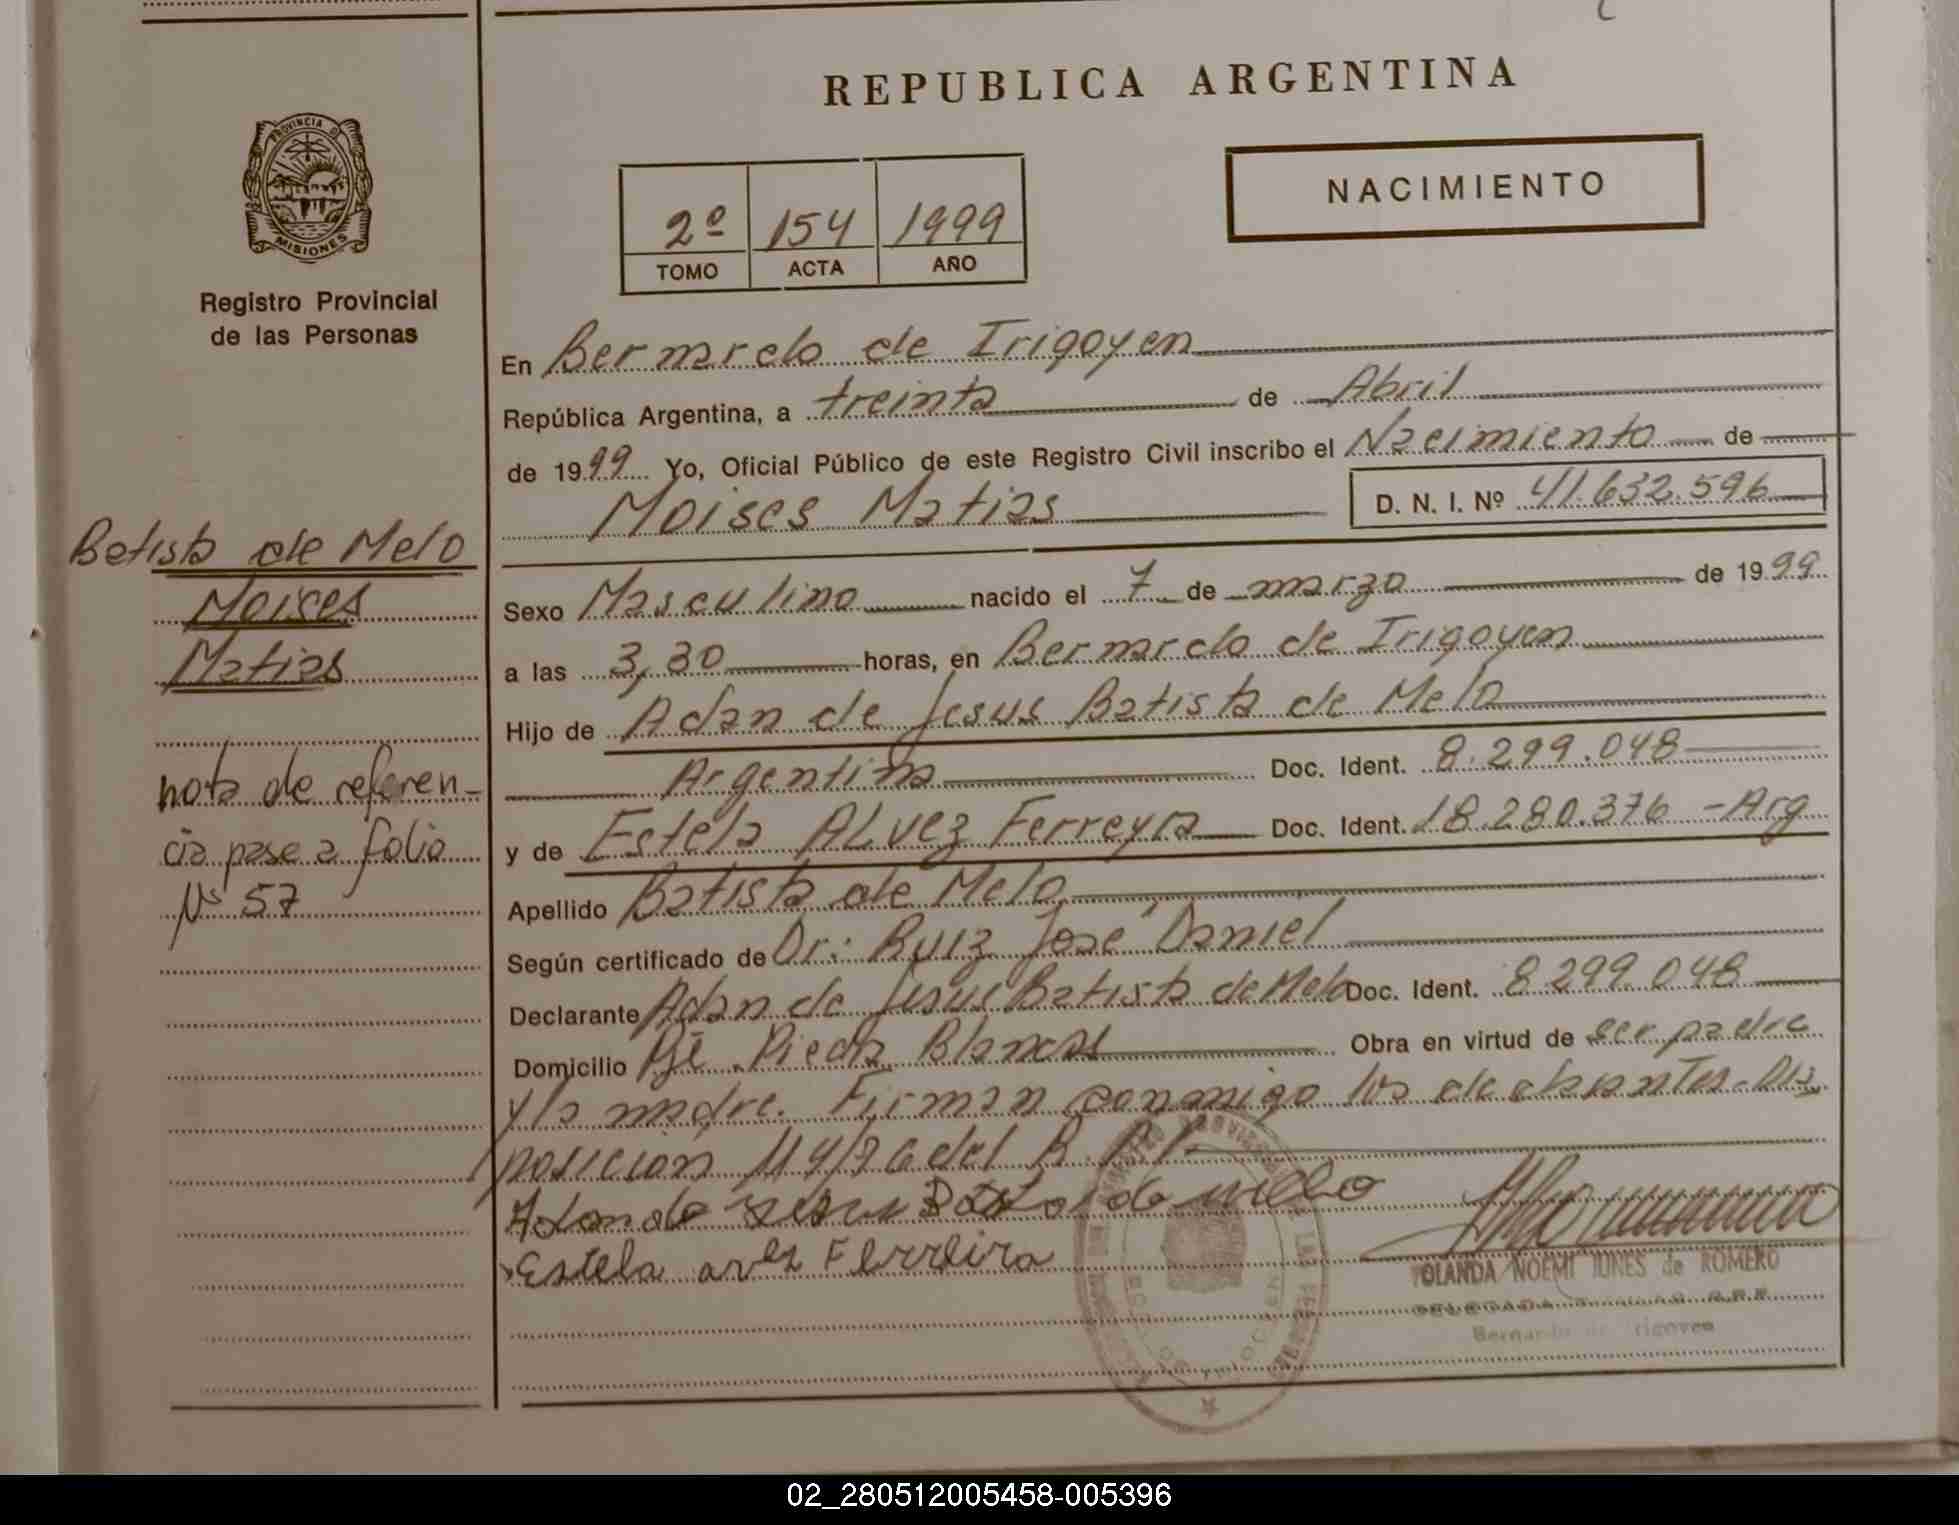 REPUBLICA ARGENTINA
NACIMIENTO
2º 154 1999
TOMO ACTA AÑO
PROVINCIA DE
MISIONES
Registro Provincial
de las Personas
Batista de Melo
Moises
Matias
nota de referen-
cia pase a folio
Nº 57
En Bernardo de Irigoyen
República Argentina, a treinta de Abril
de 1999 Yo, Oficial Público de este Registro Civil inscribo el Nacimiento de
Moises Matias D. N. I. Nº 41.632.596
Sexo Masculino nacido el 7 de marzo de 1999
a las 3,30 horas, en Bernardo de Irigoyen
Hijo de Adan de Jesus Batista de Melo
Argentina Doc. Ident. 8.299.048
y de Estela ALvez Ferreyra Doc. Ident. 18.280.376 - Arg
Apellido Batista de Melo
Según certificado de Dr: Ruiz José Daniel
Declarante Adan de Jesus Batista de Melo Doc. Ident. 8.299.048
Domicilio Pje. Piedra Blanca Obra en virtud de ser padre
y la madre. Firman conmigo los declarantes - Dis
posicion 114/96 del R.P.P.
Adan de Jesus Batista de mello
Estela arlez Ferreira
YOLANDA NOEMI de ROMERO
DELEGADA
Bernardo de Irigoyen
02_280512005458-005396